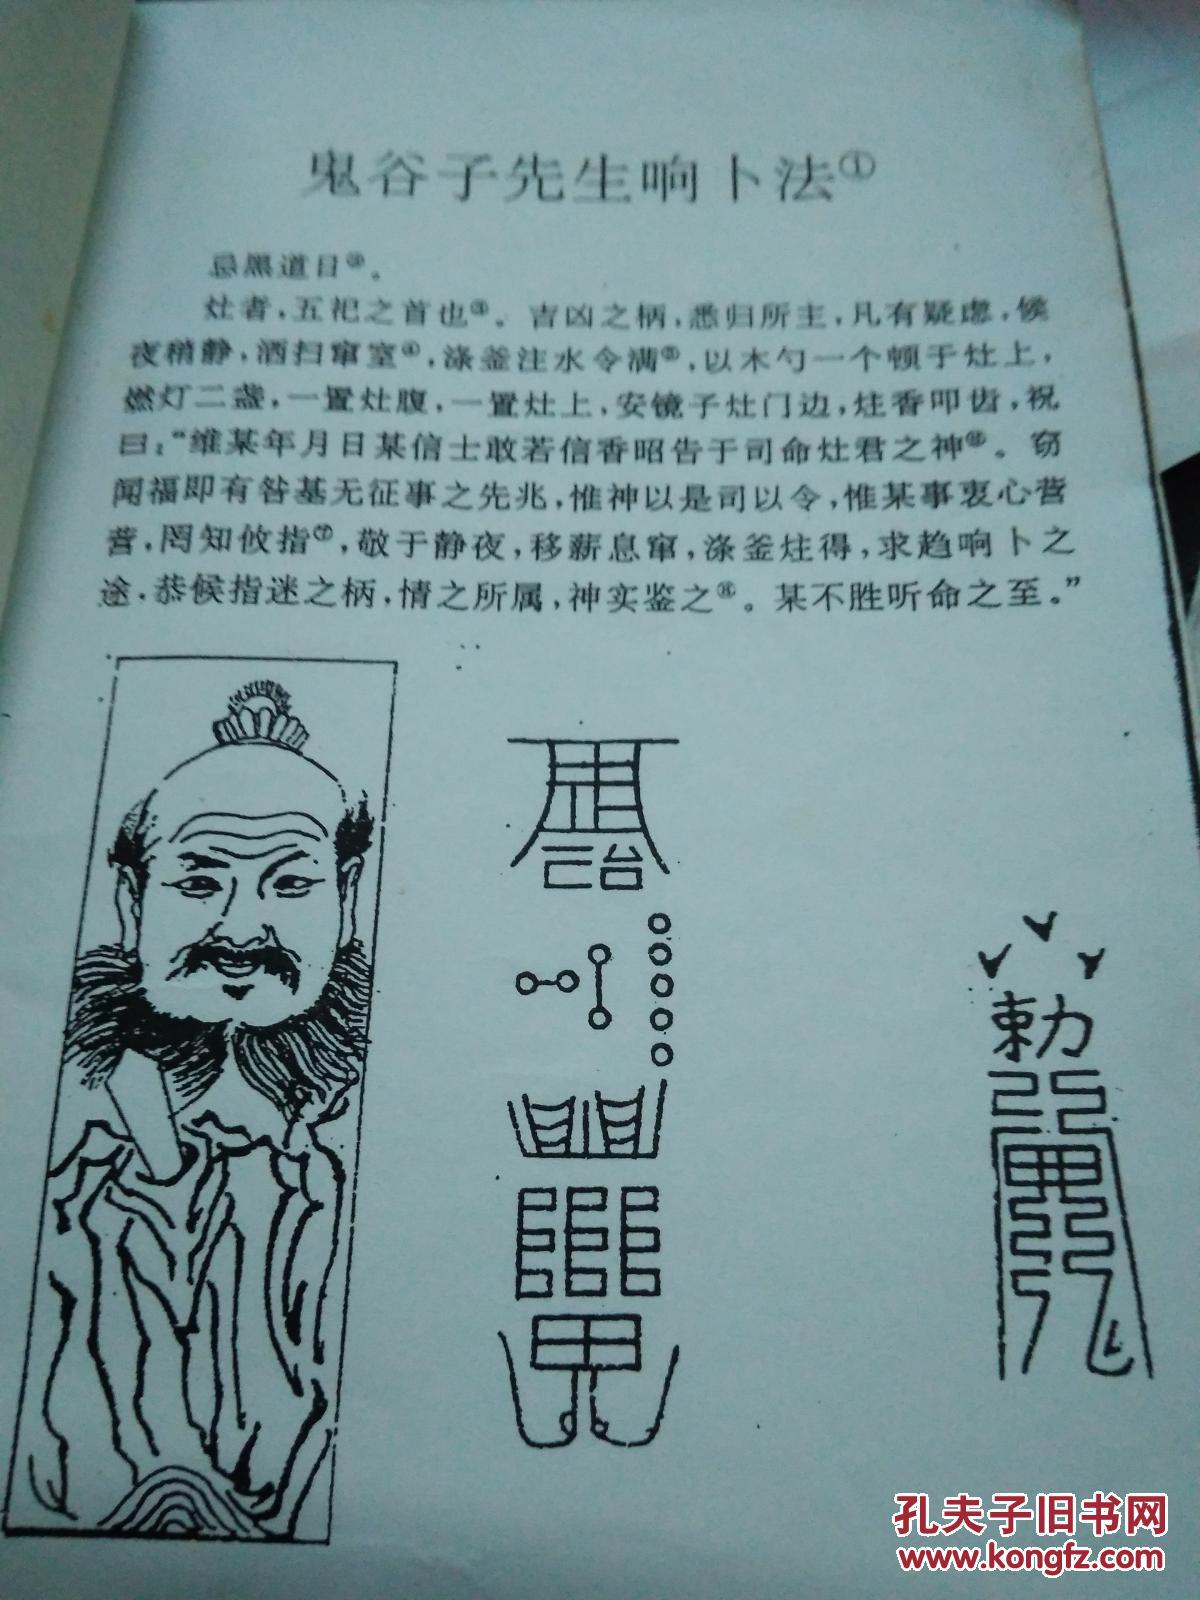 鬼谷子先生响卜法①
忌黑道日②。
灶者，五祀之首也③。吉凶之柄，悉归所主，凡有疑虑，候
夜稍静，洒扫窜室④，涤釜注水令满⑤，以木勺一个顿于灶上，
燃灯二盏，一置灶腹，一置灶上，安镜子灶门边，炷香叩齿，祝
曰：“维某年月日某信士敢若信香昭告于司命灶君之神⑥。窃
闻福即有咎基无征事之先兆，惟神以是司以令，惟某事衷心营
营，罔知攸指⑦，敬于静夜，移薪息窜，涤釜炷得，求趋响卜之
途，恭候指迷之柄，情之所属，神实鉴之⑧。某不胜听命之至。”
勅
孔夫子旧书网
www.kongfz.com